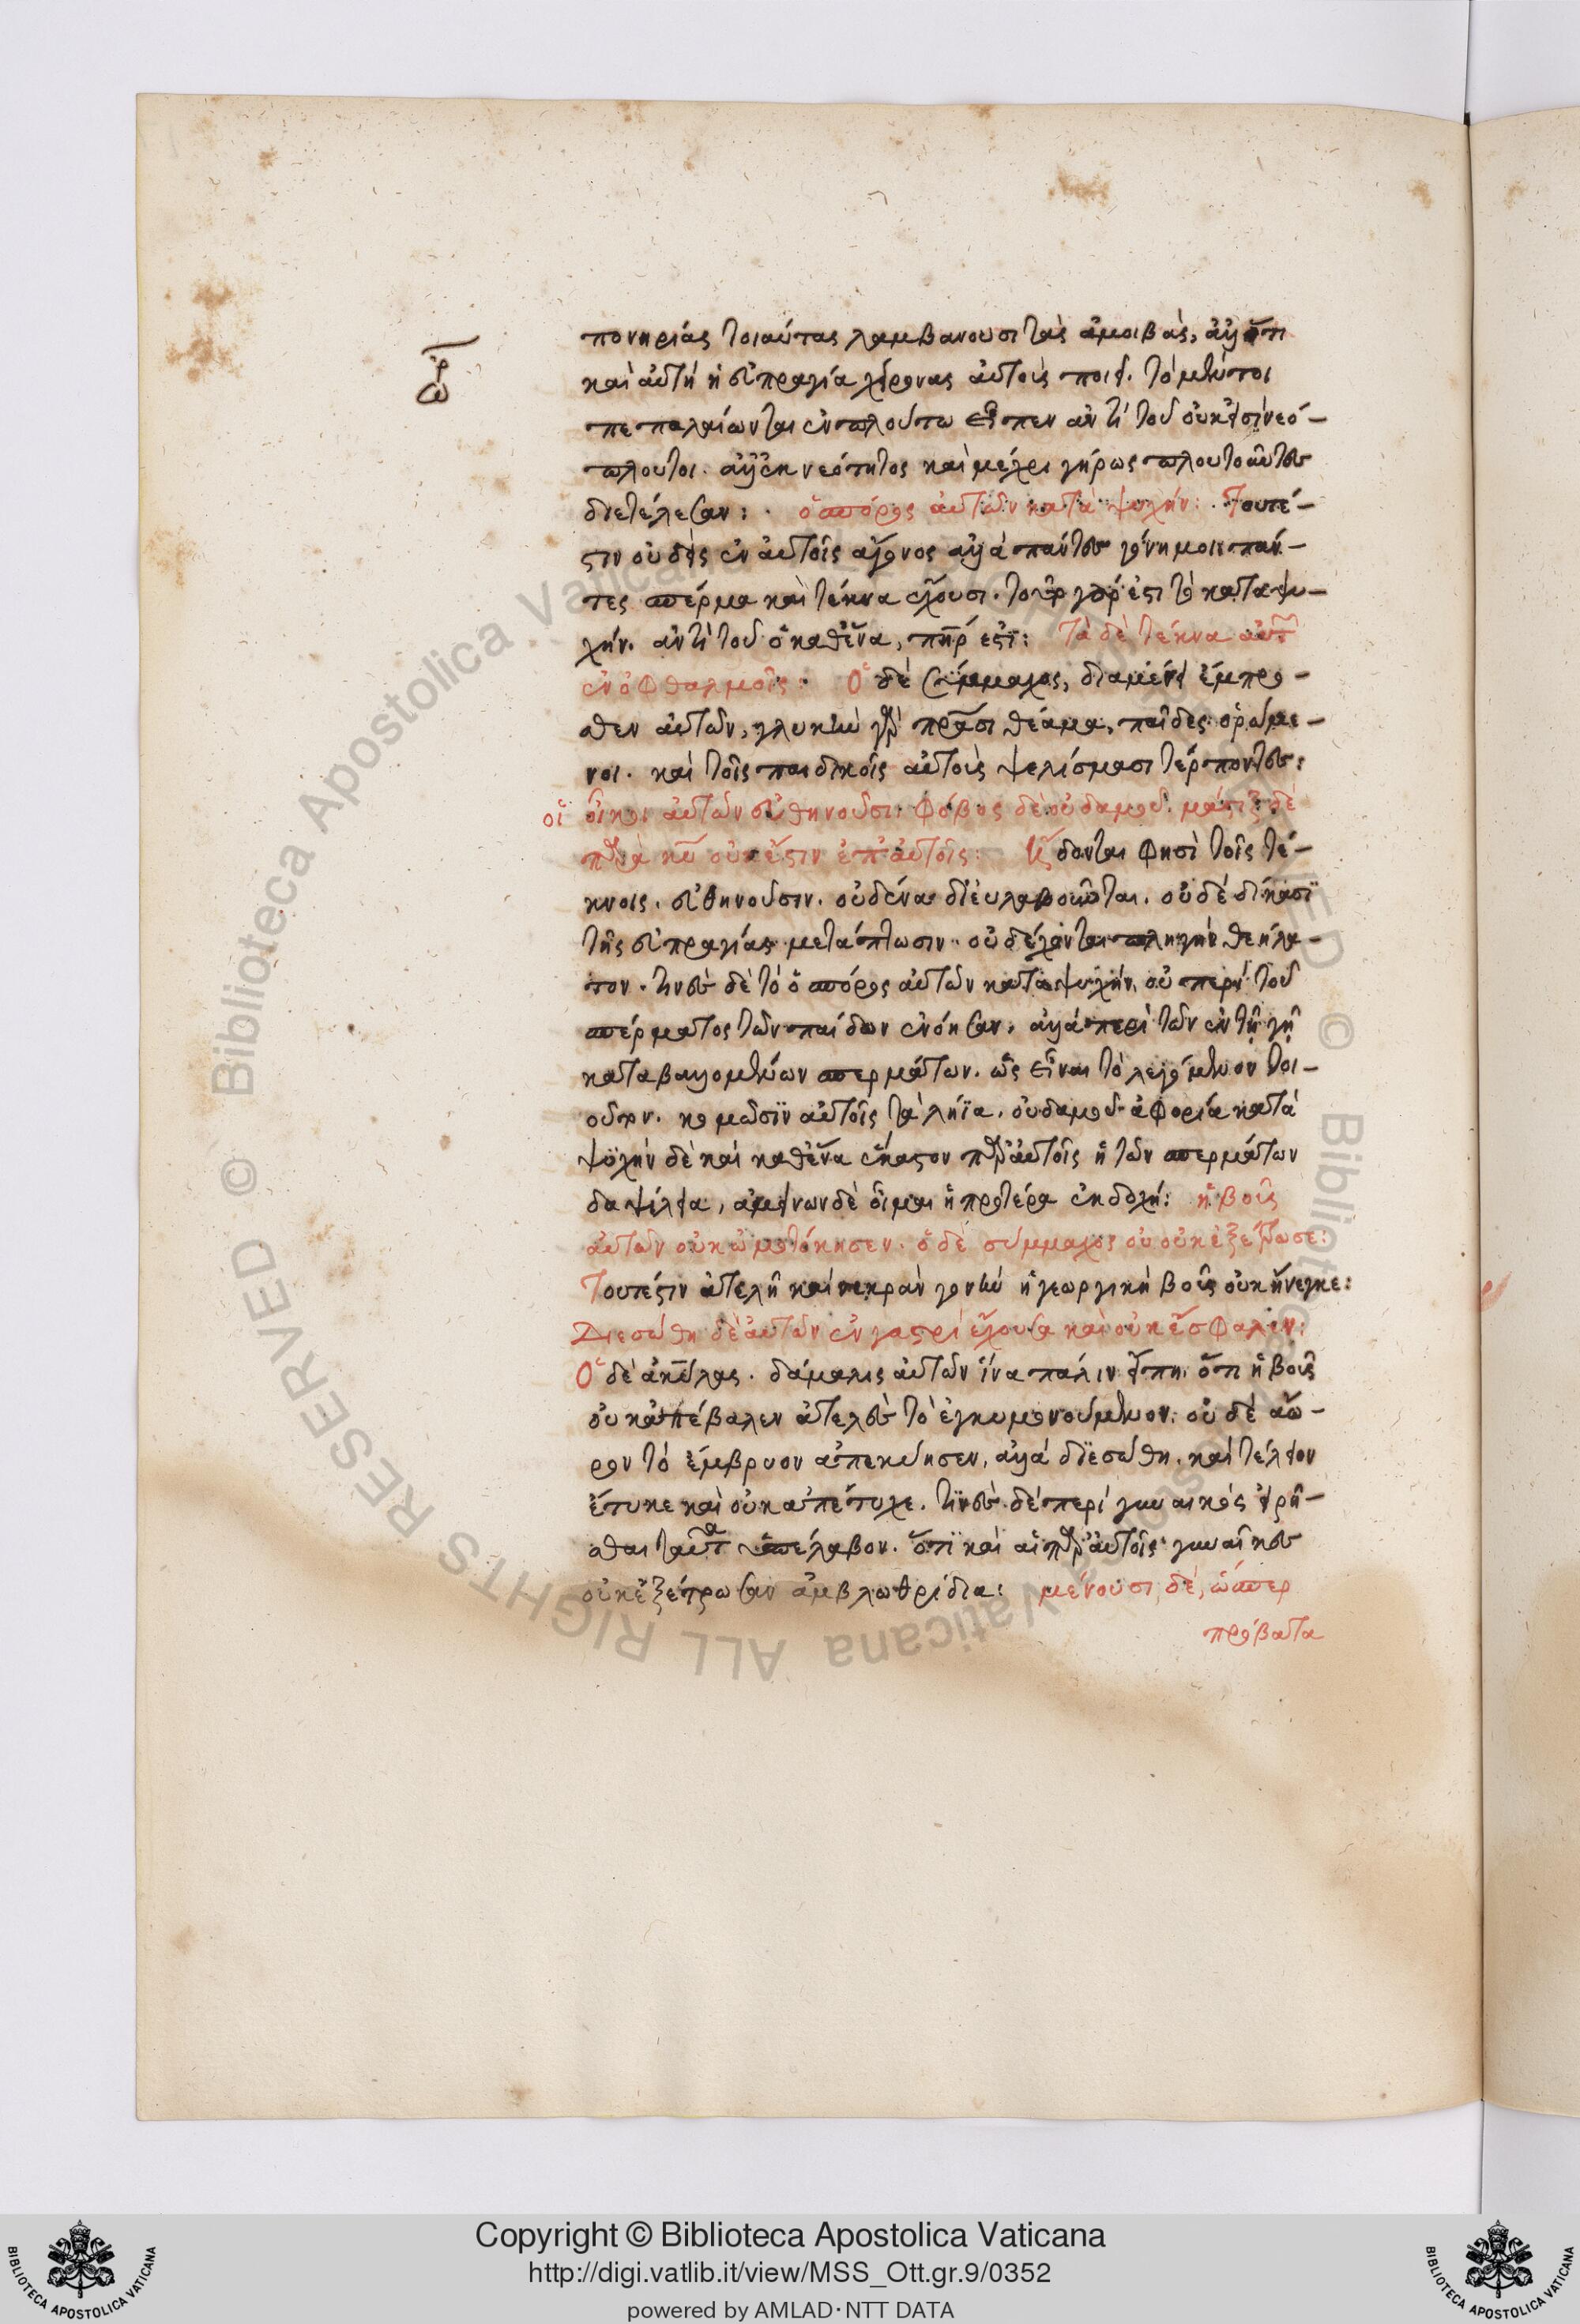 πονηρίας τοιαύτας λαμβανουσι τὰς ἀμοιβὰς, ἀλλ' ὅτι
καὶ αὐτὴ ἡ εὐπραγία χείρονας αὐτοὺς ποιεῖ. τὸ μέντοι
πεπαλαίωνται ἐν πλούτω εἶπεν ἀντὶ τοῦ οὐκ εἰσὶ νεό-
πλουτοι. ἀλλ' ἐκ νεότητος καὶ μέχρι γήρως πλουτοῦντες
διετέλεσαν: ὁ σπόρος αὐτῶν κατὰ ψυχήν: Τουτέ-
στιν οὐδεὶς ἐν αὐτοῖς ἄγονος ἀλλὰ πάντες γόνιμοι πάν-
τες σπέρμα καὶ τέκνα ἔχουσι. γάρ ἐστι τὸ κατα ψυ-
χήν. ἀντὶ τοῦ ὁ καθ' ἕνα, Τὰ δὲ τέκνα αὐτῶν
ἐν ὀφθαλμοῖς: Ὁ δὲ Σύμμαχος, διαμένει ἔμπρο-
σθεν αὐτῶν, γλυκὺ γὰρ πρᾶσι θέαμα, παῖδες ὁρώμε-
νοι. καὶ τοῖς παιδικοῖς αὐτοὺς ψελίσμασι τέρποντες:
οἱ οἶκοι αὐτῶν εὐθηνοῦσι. Φόβος δὲ οὐδαμοῦ. μάστιξ δὲ
παρὰ κυ οὐκ ἔστιν ἐπ' αὐτοῖς: δονται φησὶ τοῖς τέ-
κνοις. εὐθηνοῦσιν. οὐδένα διευλαβοῦνται. οὐδὲ
τῆς εὐπραγίας μετάπτωσιν. οὐ δέχονται πληγὴν θεήλα-
τον. τινὲς δὲ τὸ ὁ σπόρος αὐτῶν κατὰ ψυχήν, οὐ περὶ τοῦ
σπέρματος τῶν παίδων ἐνόησαν, ἀλλὰ περὶ τῶν ἐν τῆ γῆ
καταβαλλομένων σπερμάτων. ὡς εἶναι τὸ λεγόμενον τοι-
οῦτον. κομῶσϊν αὐτοῖς τὰ λήϊα. οὐδαμοῦ ἀφορία κατὰ
ψυχὴν δὲ καὶ καθ' ἕνα ἕκαστον παρ' αὐτοῖς ἡ τῶν σπερμάτων
δαψίλεια, ἀμείνων δὲ οἶμαι ἡ προτέρα ἐκδοχή: ἡ βοῦς
αὐτῶν οὐκ ὠμοτόκησεν. ὁ δὲ σύμμαχος οὐ οὐκ ἐξέτρωσε:
Τουτέστιν ἀτελῆ καὶ νεκρὰν γονὴν ἡ γεωργικὴ βοῦς οὐκ ἤνεγκε:
Διεσώθη δὲ αὐτῶν ἐν γαστρὶ ἔχουσα καὶ οὐκ ἔσφαλεν:
Ὁ δὲ ἀκύλας. δάμαλις αὐτῶν ἵνα πάλιν εἴπη, ὅτι ἡ βοῦς
οὐκ ἀπέβαλεν ἀτελὲς τὸ ἐγκυμονούμενον. οὐδὲ ἄω-
ρον τὸ ἔμβρυον ἀπεκύησεν, ἀλλὰ διεσώθη. καὶ τέλειον
ἔτυκε καὶ οὐκ ἀπέτυχε. τϊνὲς δὲ περὶ γυναικὸς εἰρῆ-
σθαι ταῦτα ὑπέλαβον. ὅτϊ καὶ αἱ παρ' αὐτοῖς γυναῖκες
οὐκ ἐξέτρωσαν ἀμβλωθρίδια: μένουσι δὲ, ὥσπερ
πρόβατα
Copyright © Biblioteca Apostolica Vaticana
http://digi.vatlib.it/view/MSS_Ott.gr.9/0352
powered by AMLAD·NTT DATA